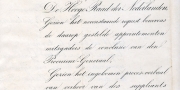 De Hooge Raad der Nederlanden
Gezien het nevenstaande request benevens
de daarop gestelde appointementen
mitsgaders de conclusie van den
Procureur Generaal,
Gezien het ingekomen proces verbaal
van verhoor van des suppliants